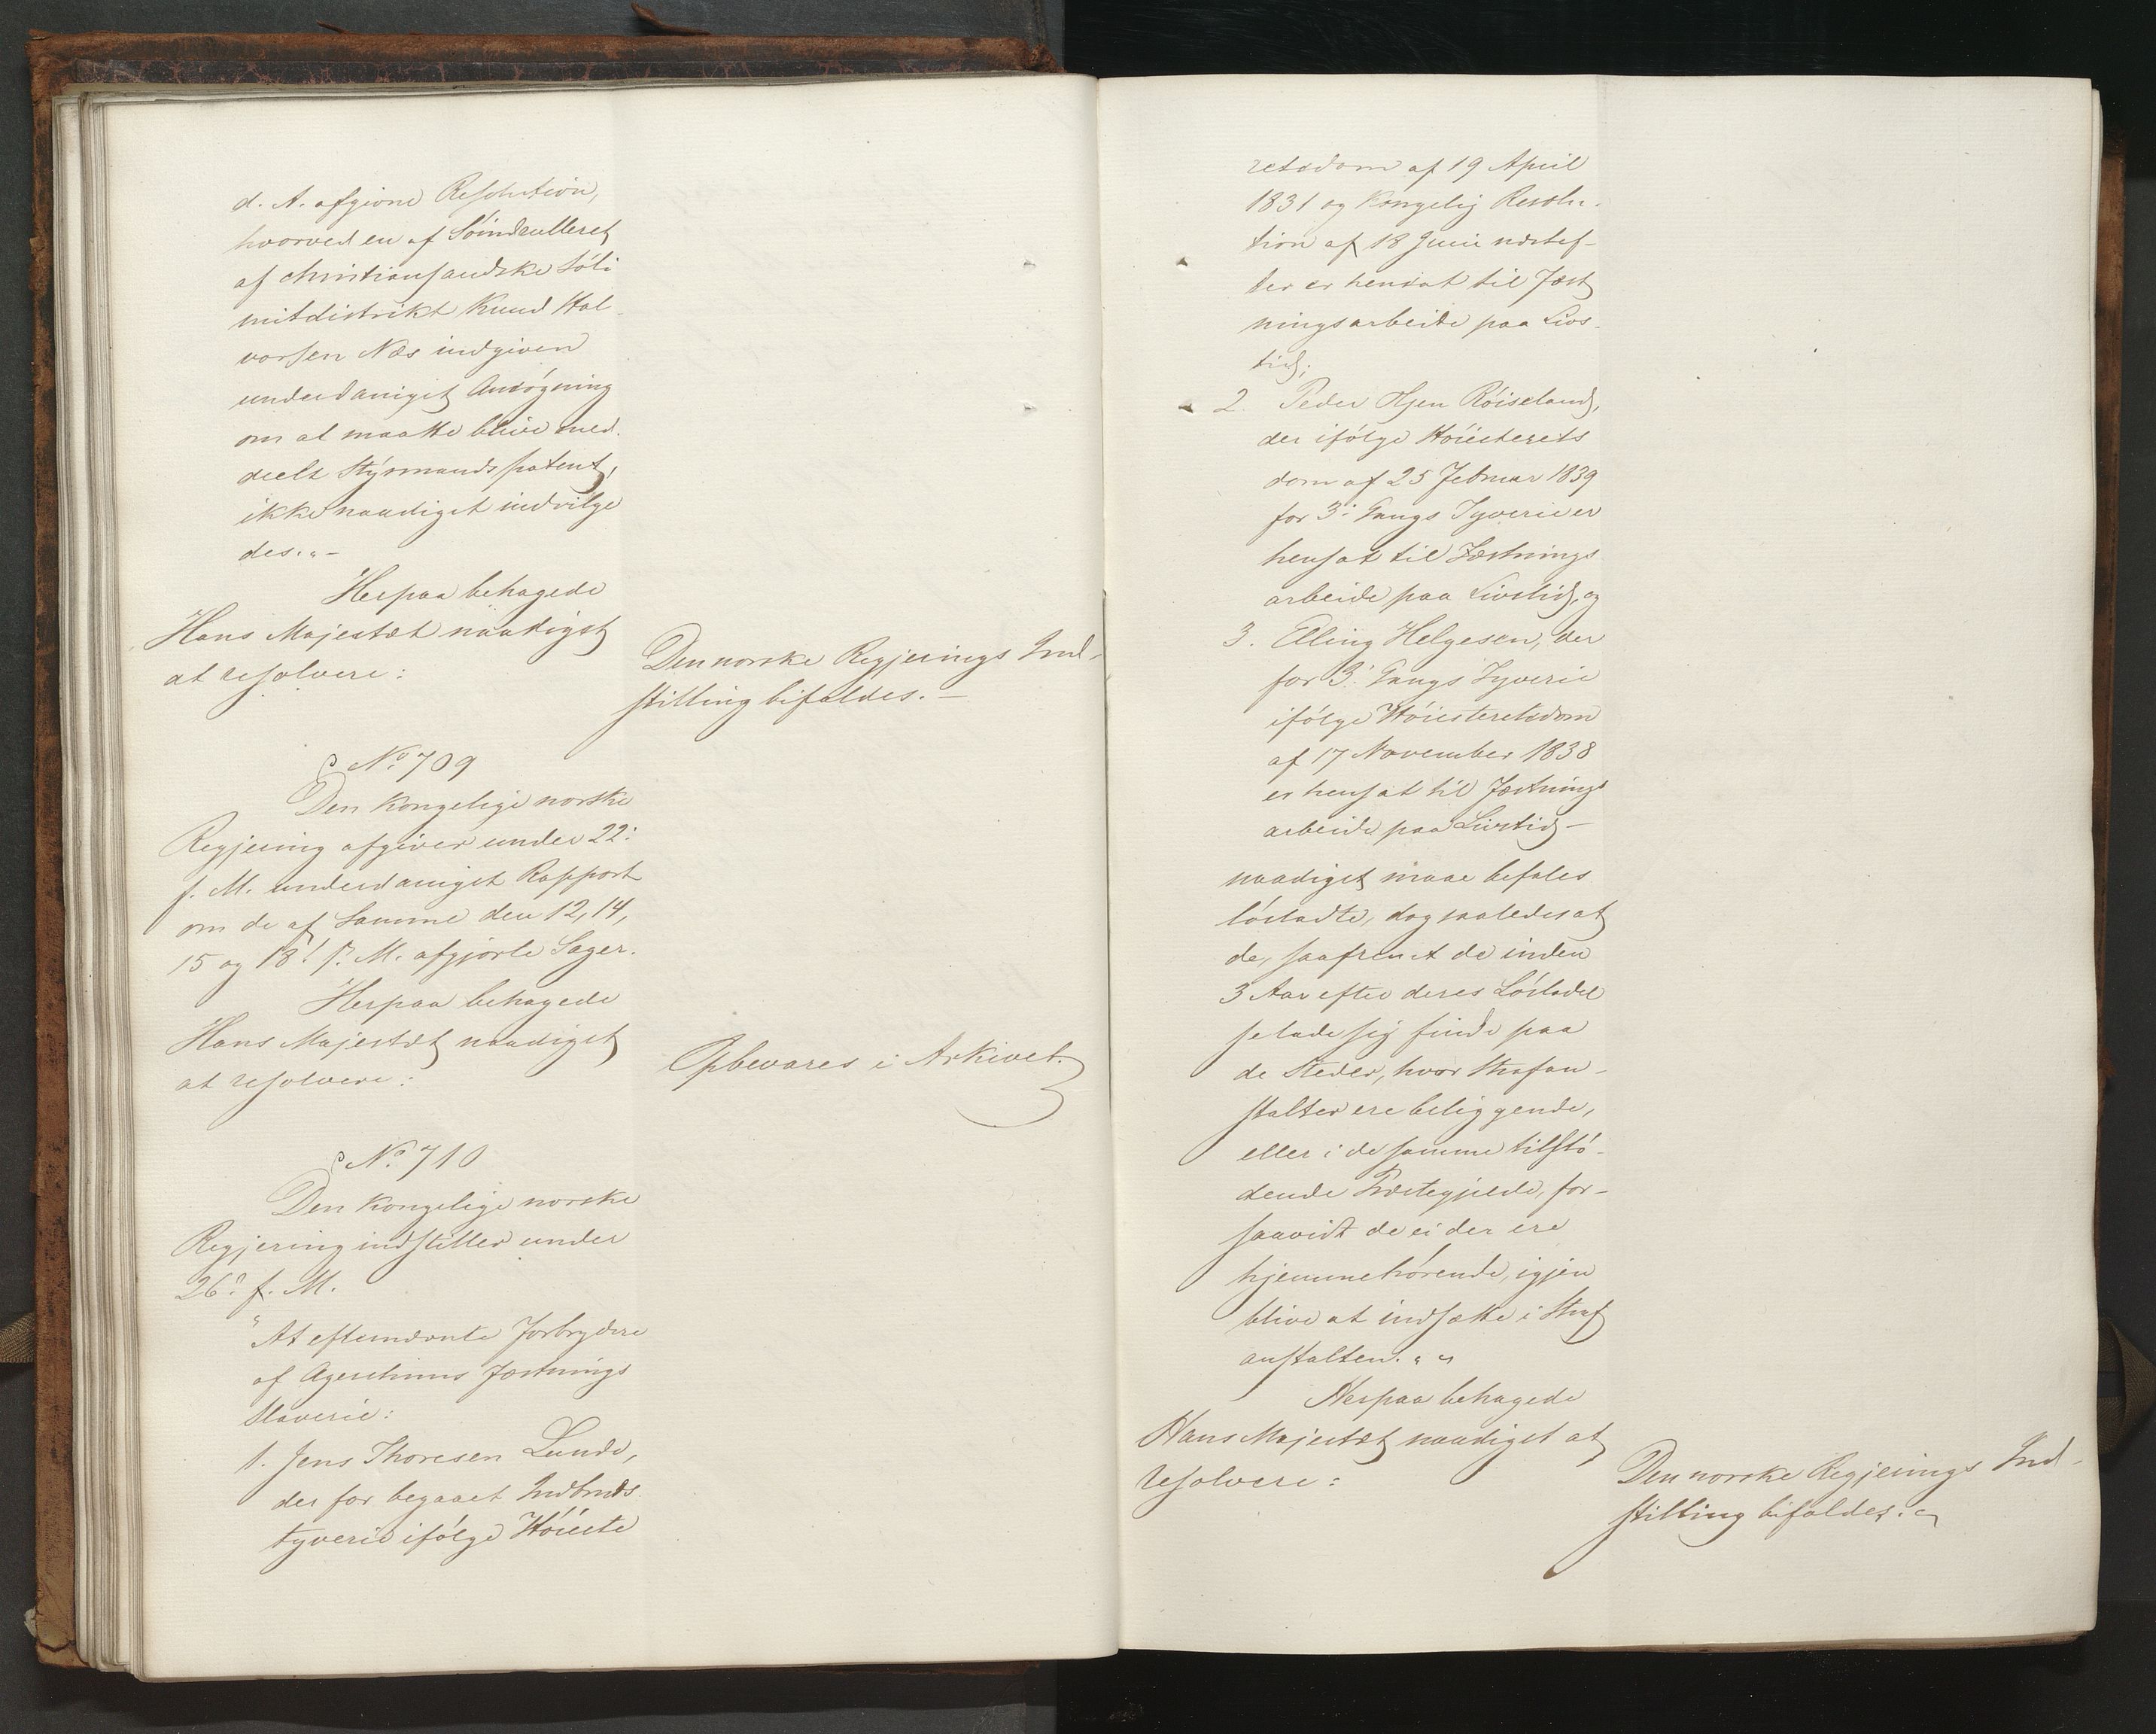 d. A. afgivne Resolution,
hvorved en af Søindrulleret
af Christiansandske Søli
mitdistrikt Knud Hal-
vorsen Næs indgiven
underdanigst Ansøgning
om at maatte blive med-
deelt Styrmandspatent,
ikke naadigst indvilge
des."-
Herpaa behagede
Hans Majestæt naadigst
at resolvere:
Den norske Regjerings Ind-
stilling bifaldes. -
No 709
Den kongelige norske
Regjering afgiver under 22:
f. M. underdanigst Rapport
om de af Samme den 12, 14,
15 og 18: s. M. afgjorte Sager.
Herpaa behagede
Hans Majestæt naadigst
at resolvere:
Opbevares i Arkivet.
No 710
Den kongelige norske
Regjering indstiller under
26: f. M.
"At efternævnte Forbrydere
af Agershuus Fæstnings
Slaverie:
1. Jens Thoresen Lunde,
der for begaaet Indbruds
tyverie ifølge Høieste
retsdom af 19 April
1831 og Kongelig Resolu-
tion af 18 Juni næstef-
ter er hensat til Fæst
ningsarbeide paa Livs-
tid;
2. Peder Olsen Røiseland,
der ifølge Høiesterets
dom af 25 Februar 1839
for 3: Gangs Tyverie er
hensat til Fæstnings
arbeide paa Livstid, og
3. Elling Helgesen, der
for 3: Gangs Tyverie
ifølge Høiesteretsdom
af 17 November 1838
er hensat til Fæstnings
arbeide paa Livstid -
naadigst maae befales
løsladte, dog saaledes at
de, saafremt de inden
3 Aar efter deres Løsladel
se lade sig finde paa
de Steder, hvor Strafan-
stalter ere beliggende,
eller i de samme tilstø-
dende Præstegjelde, for-
saavidt de ei der ere
hjemmehørende, igjen
blive at indsætte i Straf
anstalten. " "
Herpaa behagede
Hans Majestæt naadigst at
resolvere:
Den norske Regjerings Ind-
stilling bifaldes.